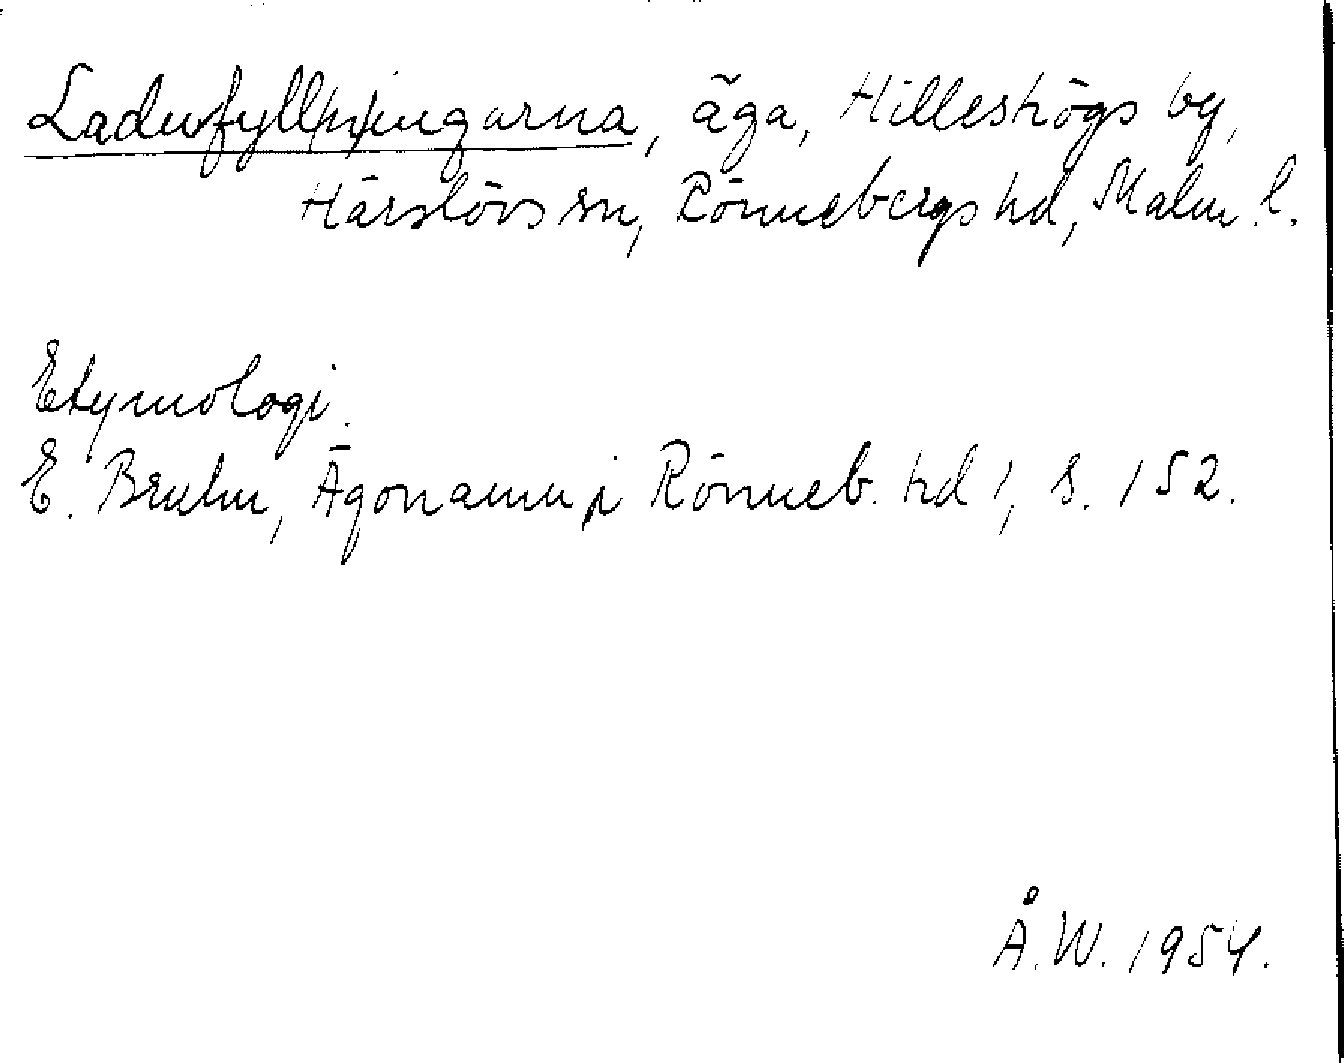 Ladufyll(n)ingarna, äga, Hilleshögs by,
Härslövs sn, Rönnebergs hd, Malm. l.
Etymologi.
E. Bruhn, Ägonamn i Rönneb. hd 1, s. 152.
Å. W. 1954.